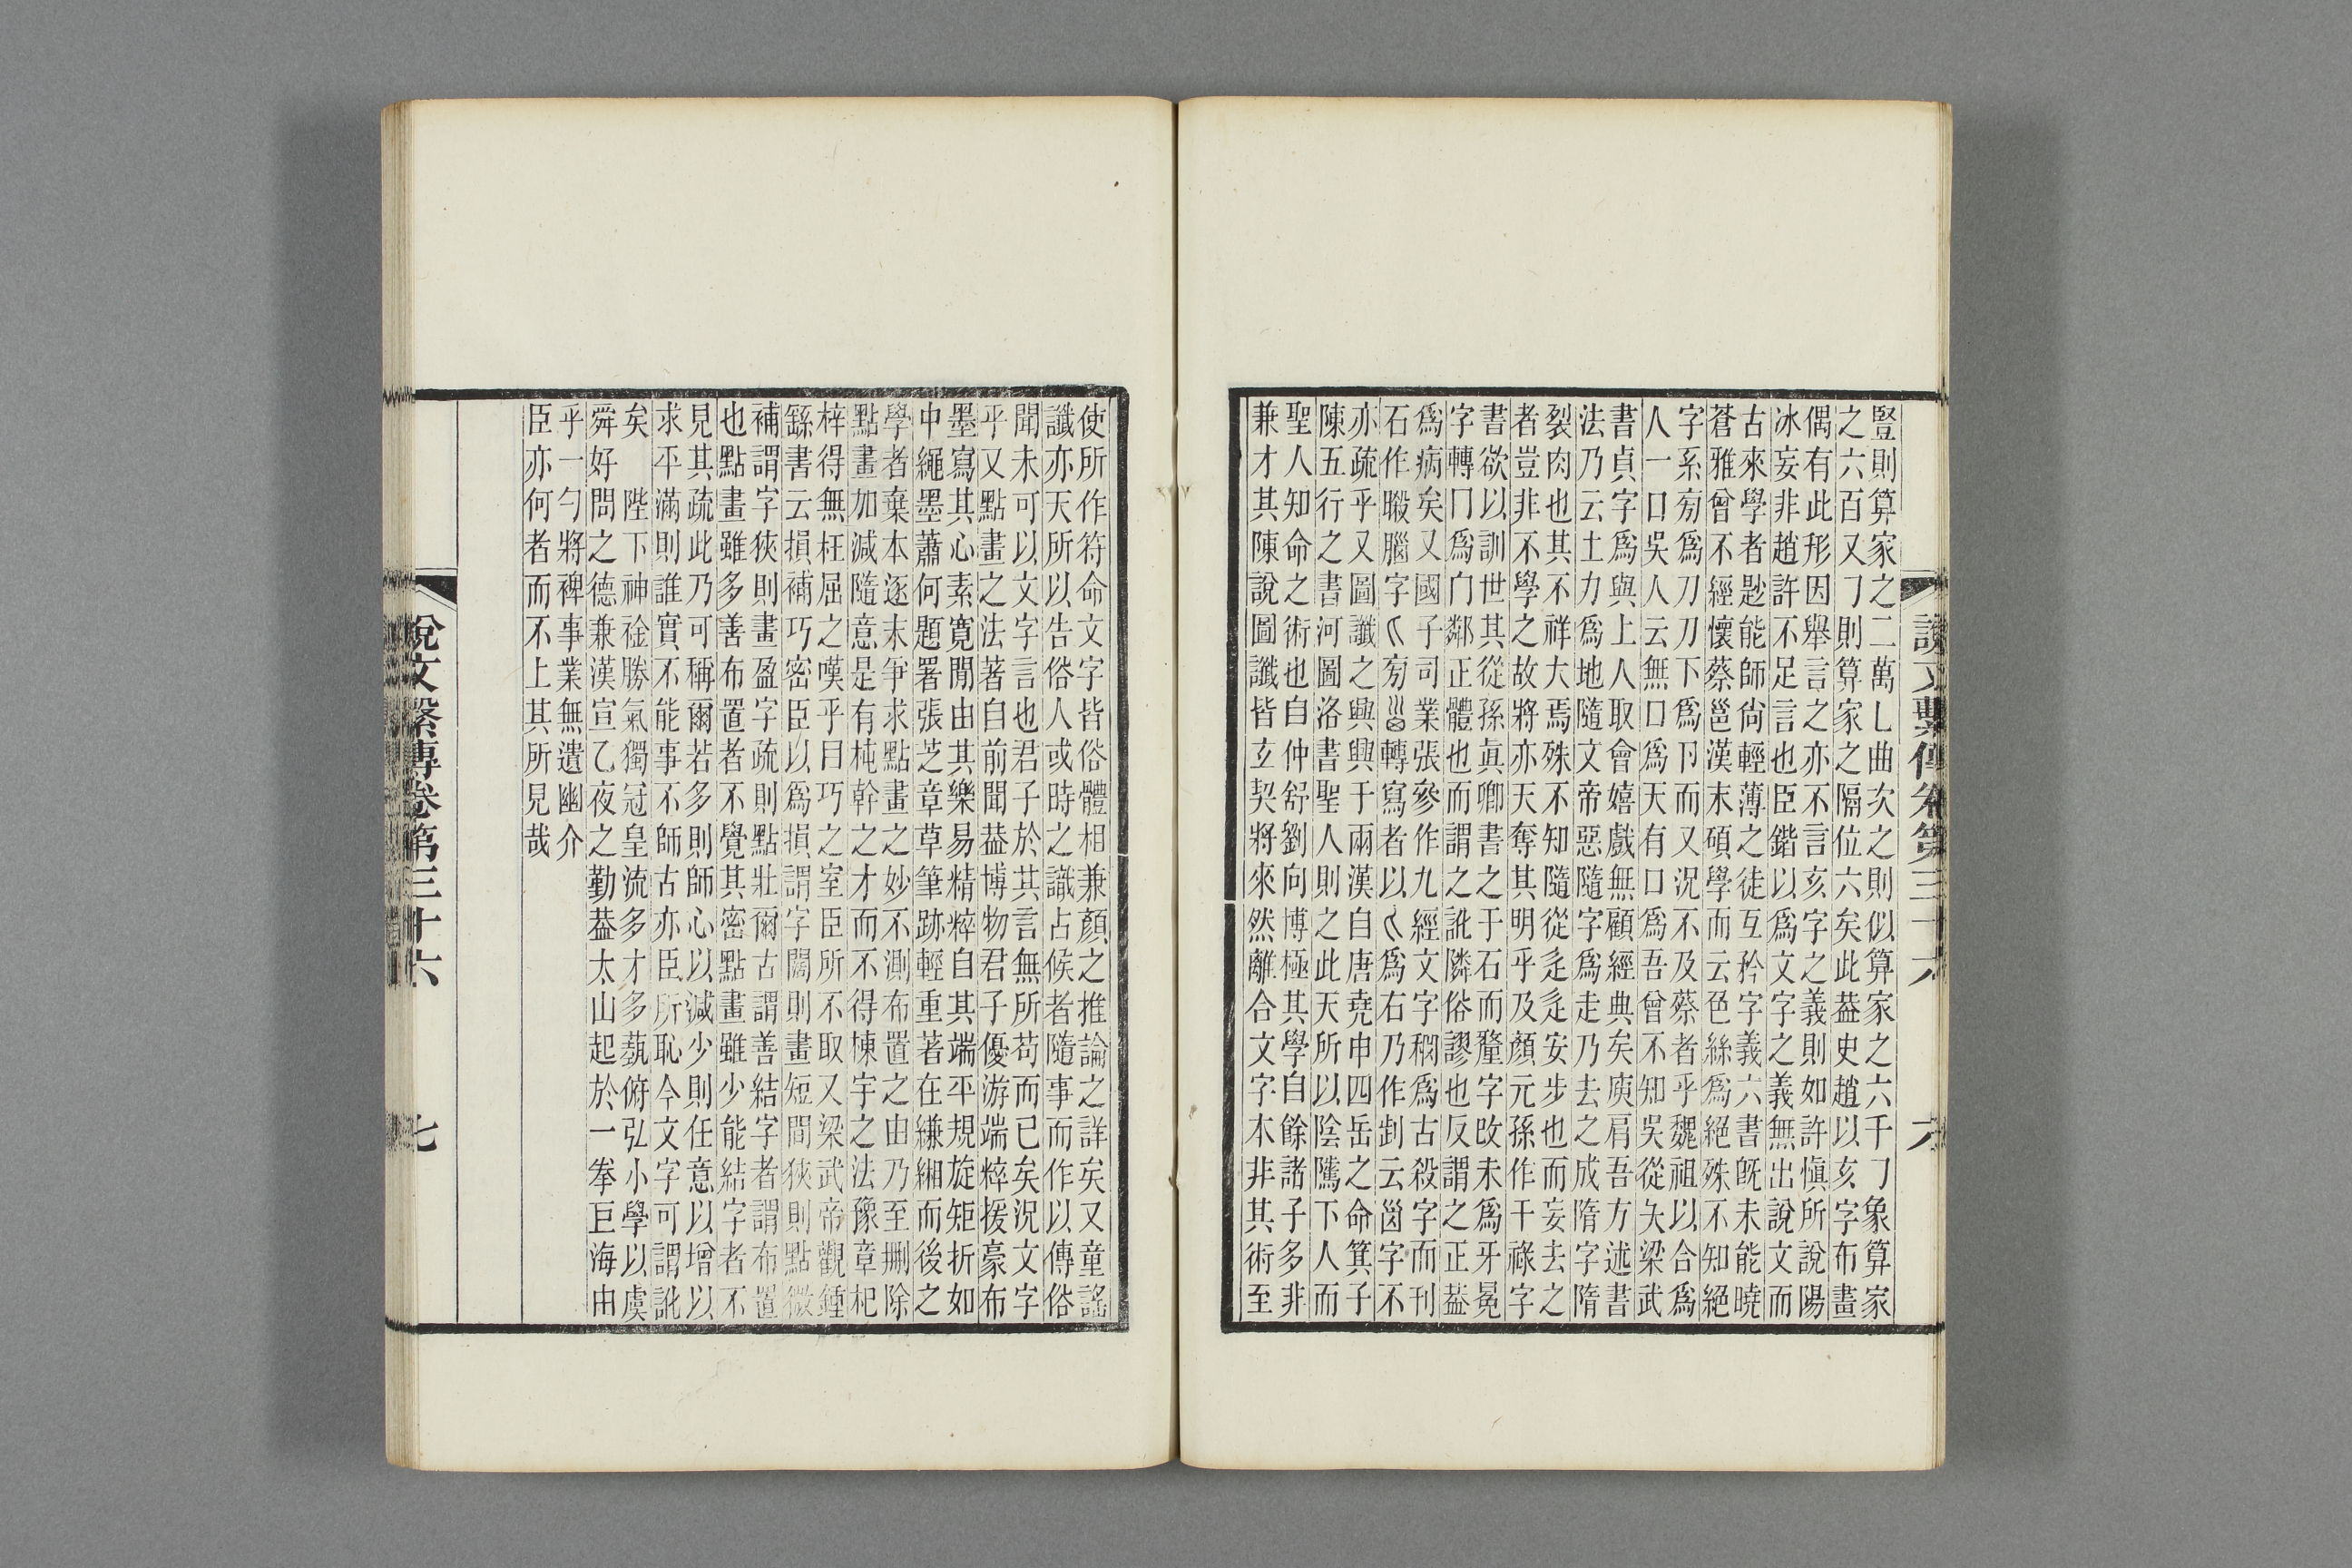 豎則算家之二萬乚曲次之則似算家之六千𠄎象算家
之六百又𠄎則算家之隔位六矣此葢史趙以亥字布畫
偶有此形因舉言之亦不言亥字之義則如許愼所說陽
冰妄非趙許不足言也臣鍇以爲文字之義無出說文而
古來學者尟能師尙輕薄之徒互矜字義六書旣未能曉
蒼雅曾不經懷蔡邕漢末碩學而云色絲爲絕殊不知絕
字糸旁爲刀刀下爲卪而又況不及蔡者乎魏祖以合爲
人一口吳人云無口爲天有口爲吾曾不知吳從夨梁武
書貞字爲與上人取會嬉戲無顧經典矣庾肩吾方述書
法乃云土力爲地隨文帝惡隨字爲走乃去之成隋字隋
裂肉也其不祥大焉殊不知隨從辵辵安步也而妄去之
者豈非不學之故將亦天奪其明乎及顏元孫作干祿字
書欲以訓世其從孫眞卿書之于石而釐字改未爲牙㫠
字轉冂爲门鄰正體也而謂之訛隣俗謬也反謂之正葢
爲病矣又國子司業張參作九經文字稠爲古殺字而刊
石作腦字旁轉寫者以爲右乃作剆云𡿺字不
亦疏乎又圖讖之興興于兩漢自唐堯申四岳之命箕子
陳五行之書河圖洛書聖人則之此天所以陰騭下人而
聖人知命之術也自仲舒劉向博極其學自餘諸子多非
兼才其陳說圖讖皆玄契將來然離合文字本非其術至
說文繫傳卷第三十六
六
使所作符命文字皆俗體相兼顏之推論之詳矣又童謠
讖亦天所以告俗人或時之識占候者隨事而作以傳俗
聞未可以文字言也君子於其言無所苟而已矣況文字
乎又點畫之法著自前聞葢博物君子優游端粹援豪布
墨寫其心素寬閒由其樂易精粹自其端平規旋矩折如
中繩墨蕭何題署張芝章草筆跡輕重著在縑緗而後之
學者棄本逐末爭求點畫之妙不測布置之由乃至刪除
點畫加減隨意是有杶幹之才而不得棟宇之法豫章杞
梓得無枉屈之嘆乎曰巧之室臣所不取又梁武帝觀鍾
繇書云損補巧密臣以爲損謂字闊則畫短閒狹則點微
補謂字狹則畫盈字疏則點壯爾古謂善結字者謂布置
也點畫雖多善布置者不覺其密點畫雖少能結字者不
見其疏此乃可稱爾若多則師心以減少則任意以增以
求平滿則誰實不能事不師古亦臣所恥今文字可謂訛
矣　陛下神䘲勝氣獨冠皇流多才多蓺俯弘小學以虞
舜好問之德兼漢宣乙夜之勤葢太山起於一拳巨海由
乎一勺將裨事業無遺幽介
臣亦何者而不上其所見哉
說文繫傳卷第三十六
七